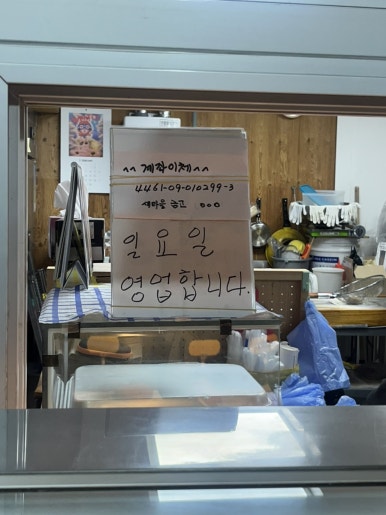 ^^ 계좌이체 ^^
4461-09-010299-3
새마을 금고 ○○○
일요일
영업합니다.